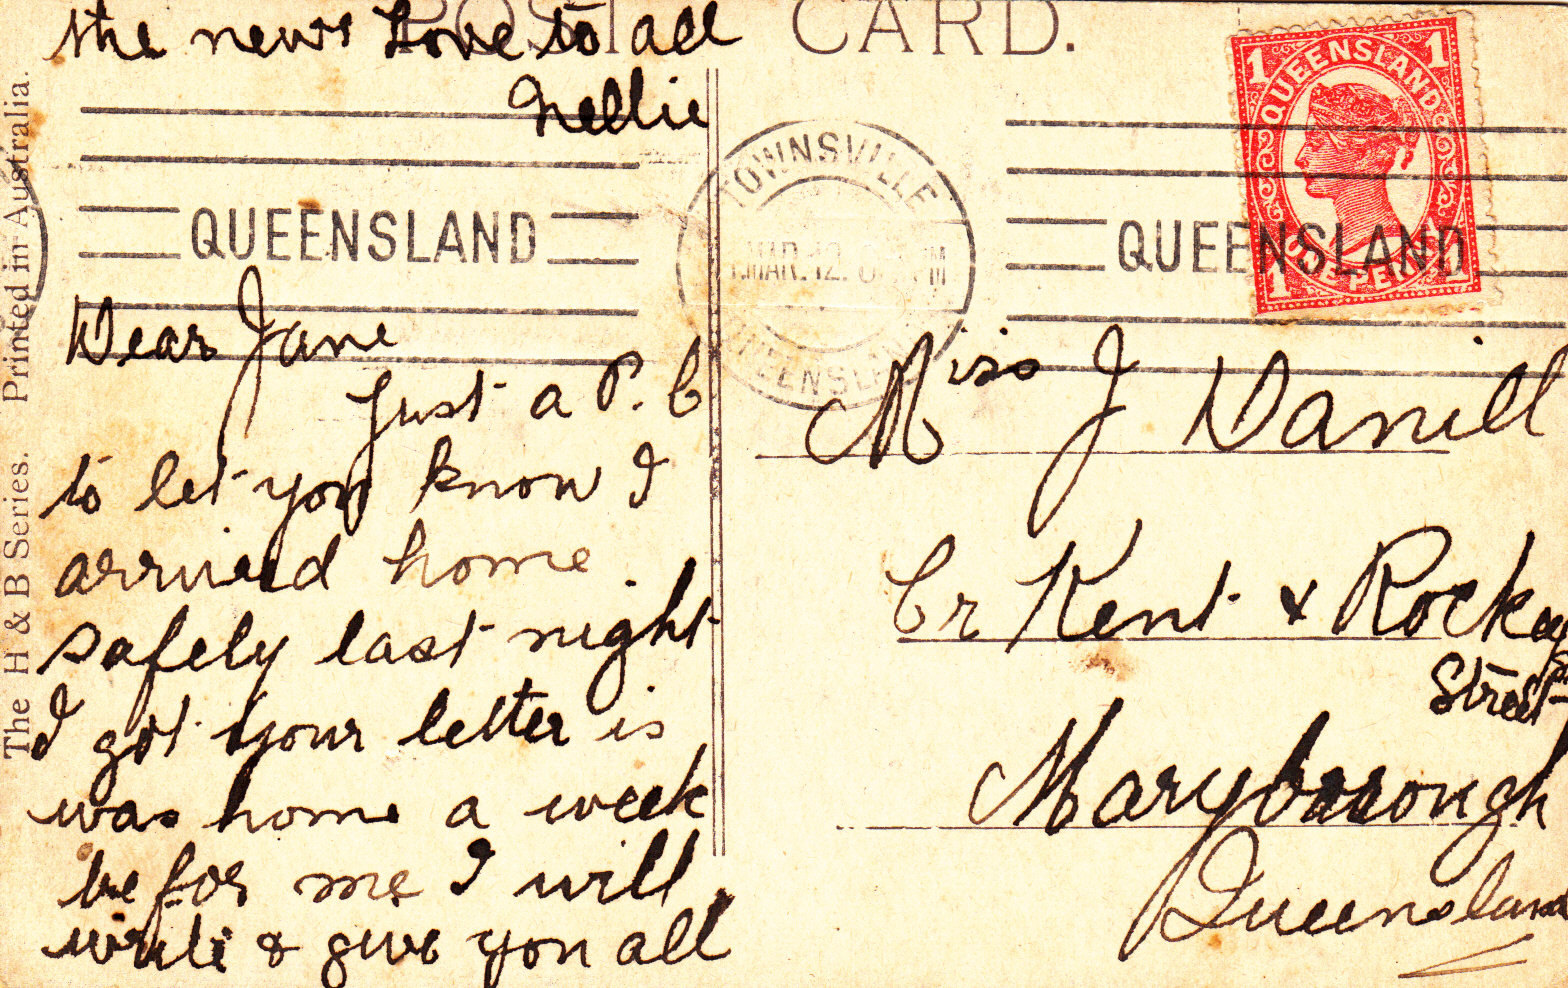 POST CARD.
the news Love to all
Nellie
The H & B Series. Printed in Australia.
QUEENSLAND
TOWNSVILLE
MAR. 12.
QUEENSLAND
QUEENSLAND
1 QUEENSLAND 1
1 ONE PENNY 1
Dear Jane
Just a P. C
to let you know I
arrived home
safely last night
I got your letter is
was home a week
be for me I will
write & give you all
Miss J Daniell
Cr Kent &
Street
Maryborough
Queensland